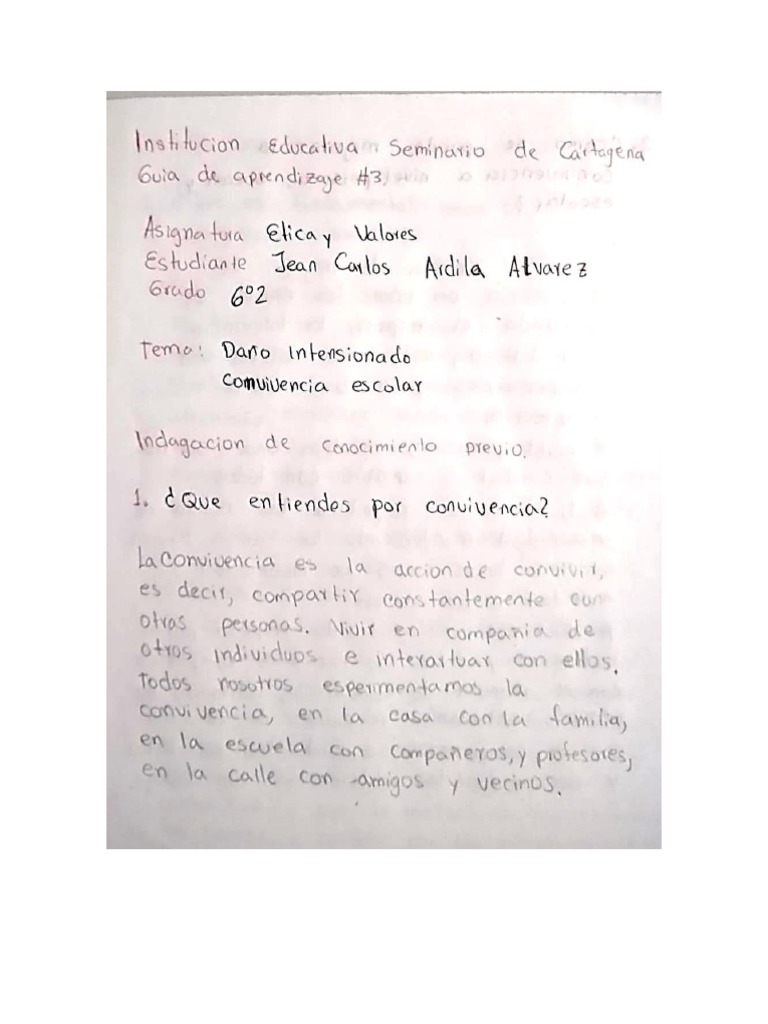 Institucion Educativa Seminario de Cartagena
Guia de aprendizaje #3
Asignatura Etica y Valores
Estudiante Jean Carlos Ardila Alvarez
Grado 6º2
Tema: Daño Intensionado
Comvivencia escolar
Indagacion de conocimiento previo.
1. ¿Que entiendes por convivencia?
La convivencia es la accion de convivir,
es decir, compartir constantemente con
otras personas. Vivir en compañia de
otros individuos e interartuar con ellos.
Todos nosotros esperimentamos la
convivencia, en la casa con la familia,
en la escuela con compañeros, y profesores,
en la calle con amigos y vecinos.